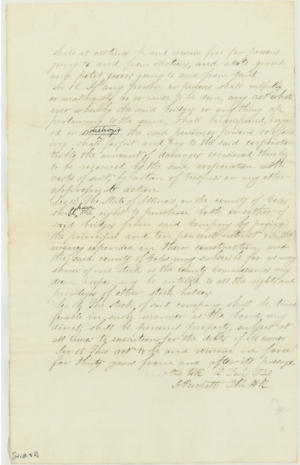 shall at all times be and remain free for persons
going to and from elections, and also to grand
and petit jurors going to and from court
Sec 6 If any person or persons shall wilfully
or maliciously do or cause to be done, any act whatso
ever whereby the said bridges or any thing ap
pertaining to the same, shall be impaired, injur
ed or destroyed the said person or persons so offend
ing, shall forfeit and pay to the said corporation
the amount of damages occasioned thereby
to be recovered by the said corporation with
costs of suit, by action of trespass or any other
appropriate action.
Sec 7 The State of Illinois, or the county of
shall have the right to purchase both or either of
said bridges from said company by paying
the principal and ten per cent interest on the
moneys expended in their construction, and
the said county of may subscribe for as many
shares of said stock as the county commissioners may
deem proper, and be entitled to all the rights and
privileges of other stock holders
Sec 8 The stock of said company shall be trans
ferable in such manner as the board may
direct, shall be personal property, subject at
all times to execution for the debts of the owner
Sec 9 This act to be and remain in force
for thirty years from and after its passage